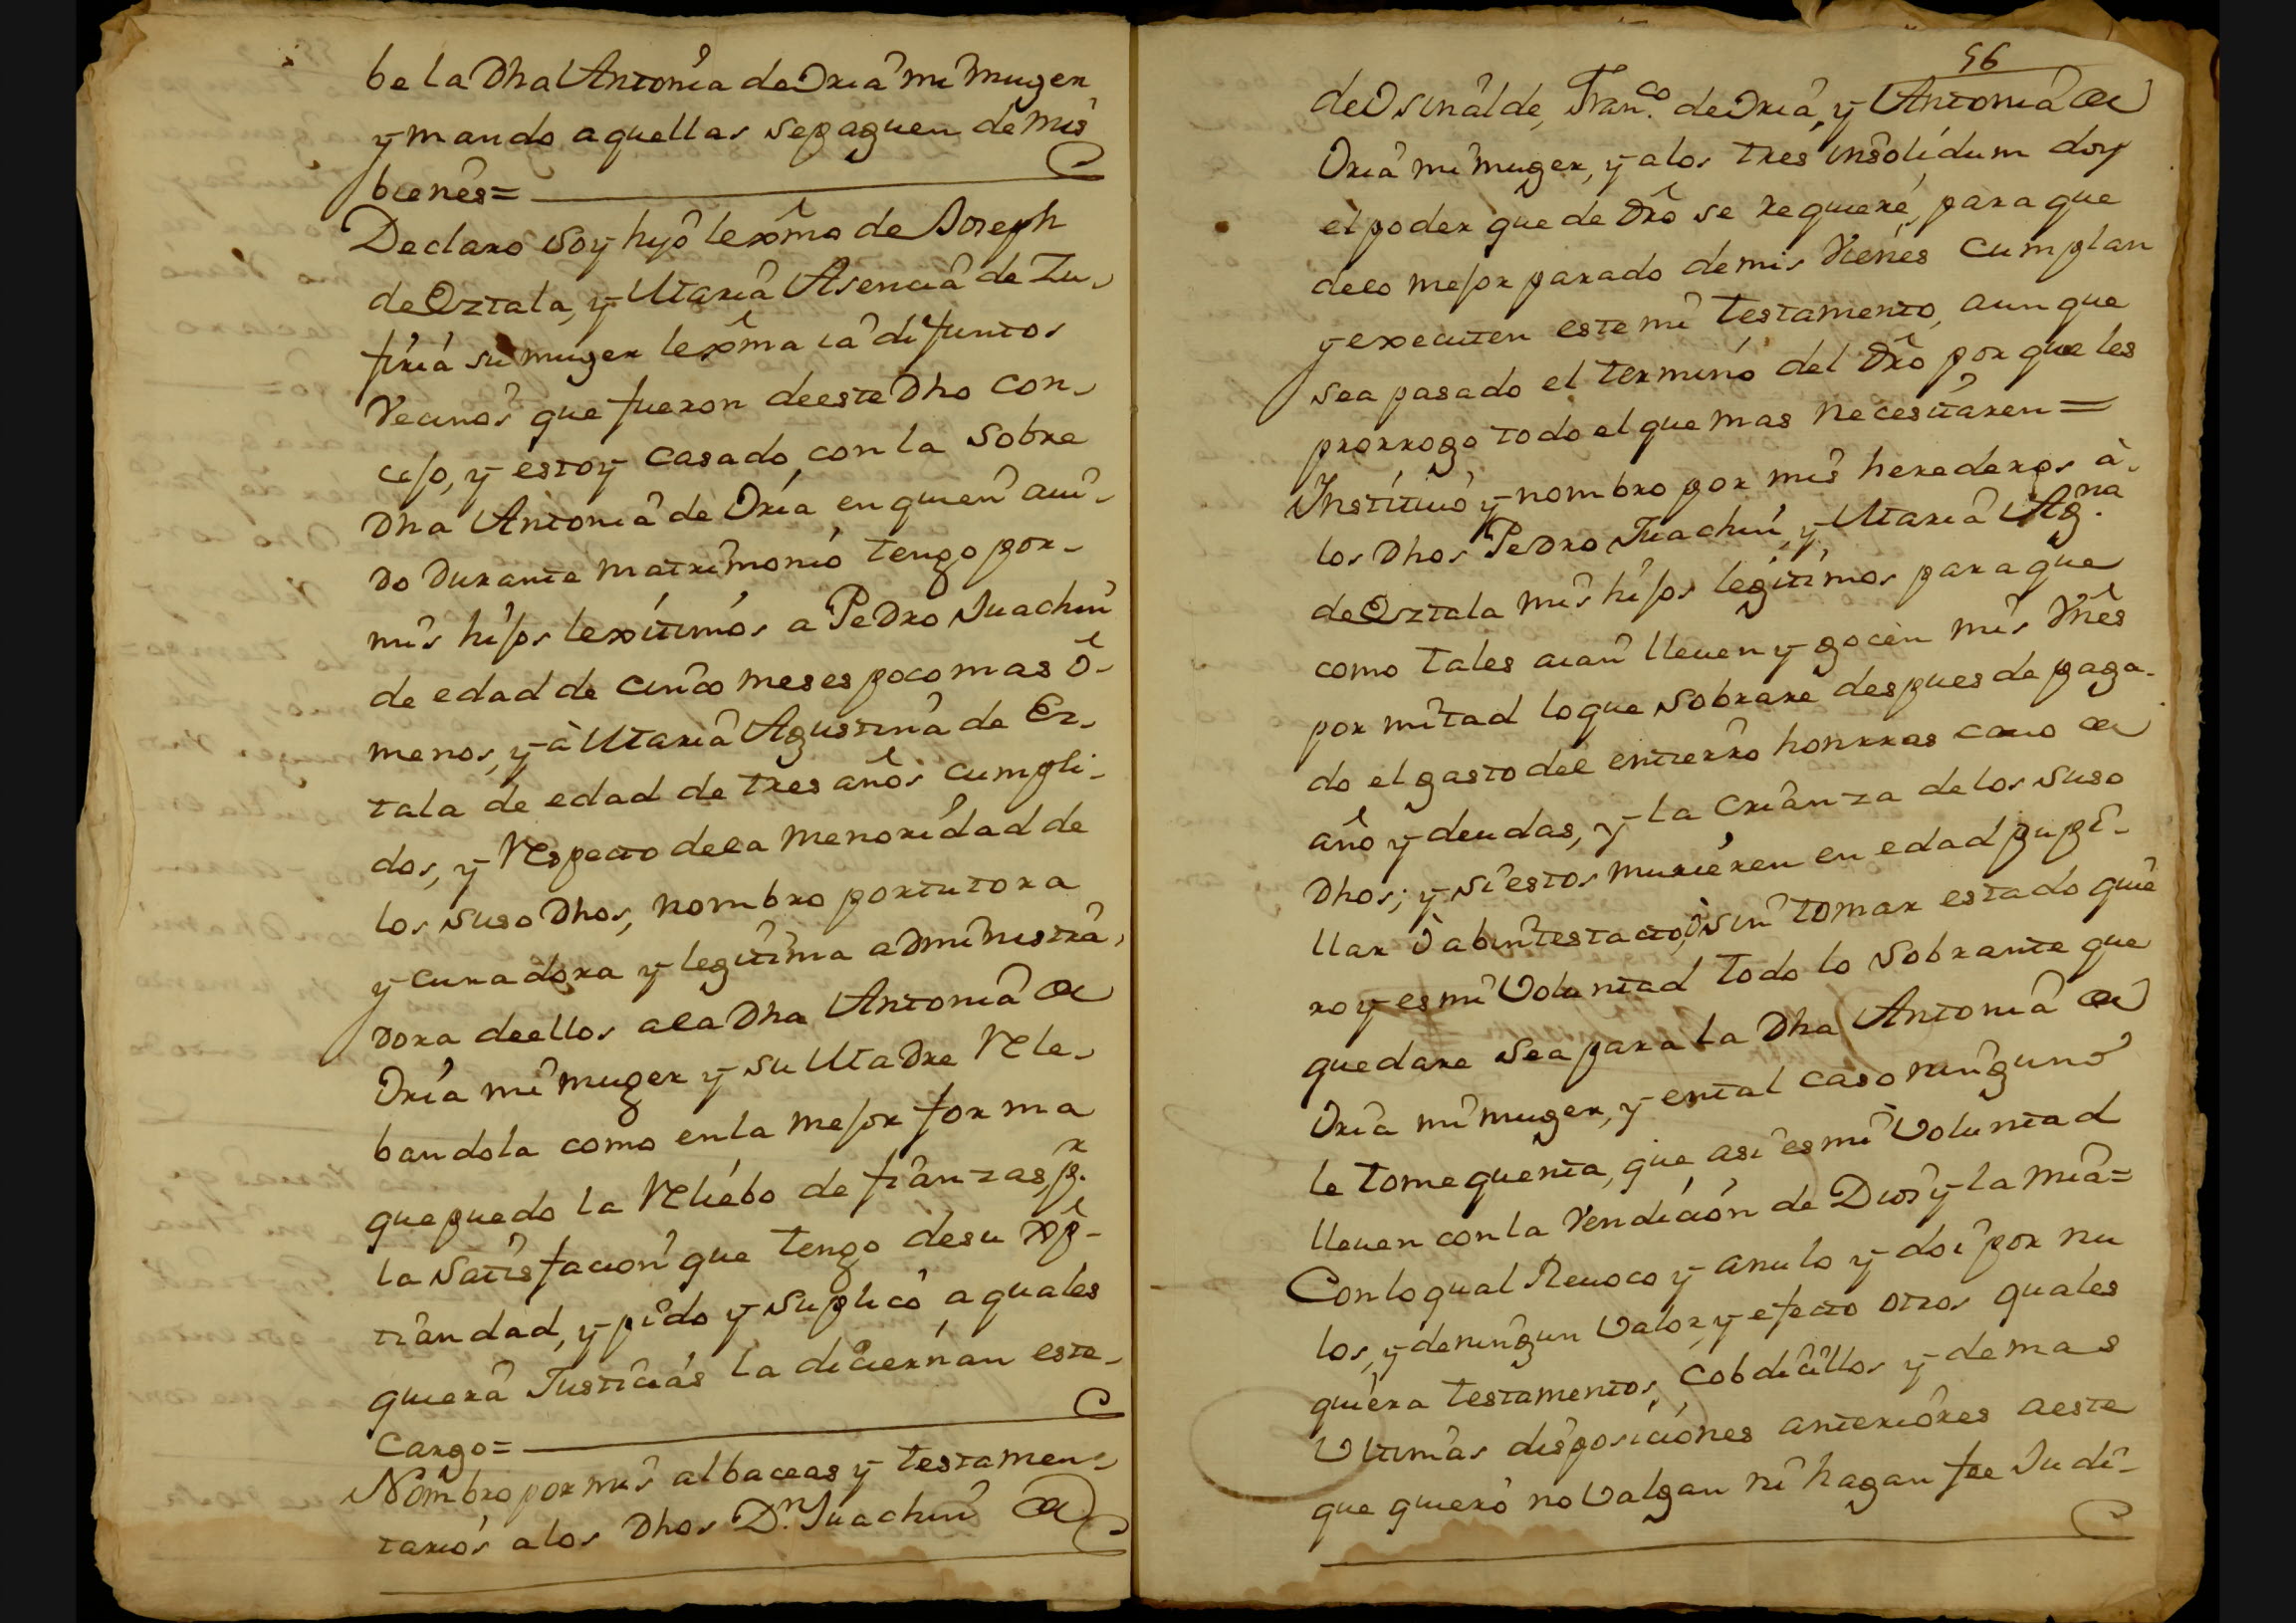 be la Dha Antonia de Oria mi muger
y mando aquellas se paguen de mis
bienes=
Declaro soy hijo lexmo de Joseph
de Oztala, y Maria Asencia de Zu-
firia su muger lexma ia difuntos
Vecinos que fueron de este Dho con-
cejo, y estoy casado con la sobre
Dha Antonia de Oria en quien avi-
do Durante matrimonio tengo por-
mis hijos lexitimos a Pedro Juachin
de edad de cinco meses poco mas ô-
menos, y â Maria Agustina de Oz-
tala de edad de tres años cumpli-
dos, y Respecto de la menoridad de
los suso Dhos, nombro por tutora
y curadora y legitima administra-
Dora de ellos a la Dha Antonia de
Oria mi muger y su Madre Rele-
bandola como en la mejor forma
que puedo la Reliebo de fianzas, pr.
la satisfacion que tengo de su xp-
tiandad, y pido y suplico a quales
quiera Justicias la diciernan este-
Cargo=
Nombro por mis albaceas y testamen-
tarios a los Dhos Dn. Juachin de
56
de Osinalde, Franco. de Oria, y Antonia de
Oria mi muger, y a los tres insolidum doy
el poder que de Dro se requiere, para que
de lo mejor parado de mis Vienes cumplan
y executen este mi testamento, aunque
sea pasado el termino del Dro por que les
prorrogo todo el que mas necesitaren=
Instituio y nombro por mis herederos à-
los Dhos Pedro Juachin, y Maria Agna.
de Oztala mis hijos legitimos para que
como tales aian lleven y gocen mis Vnes
por mitad lo que sobrare despues de paga-
do el gasto del entierro honrras cavo de
año y deudas, y la crianza de los suso
Dhos; y si estos murieren en edad pupi-
llar ô abintestacto, ô sin tomar estado quie
ro y es mi Voluntad todo lo sobrante que
quedare sea para la Dha Antonia de
Oria mi muger, y en tal caso ninguno
le tome quenta, que asi es mi Voluntad
lleven con la Vendicion de Dios y la mia=
Con lo qual Revoco y anulo y doi por nu
los, y de ningun Valor, y efecto otros quales
quiera testamentos, cobdicillos y demas
Ultimas disposiciones anteriores a este
que quiero no Valgan ni hagan fee Judi-